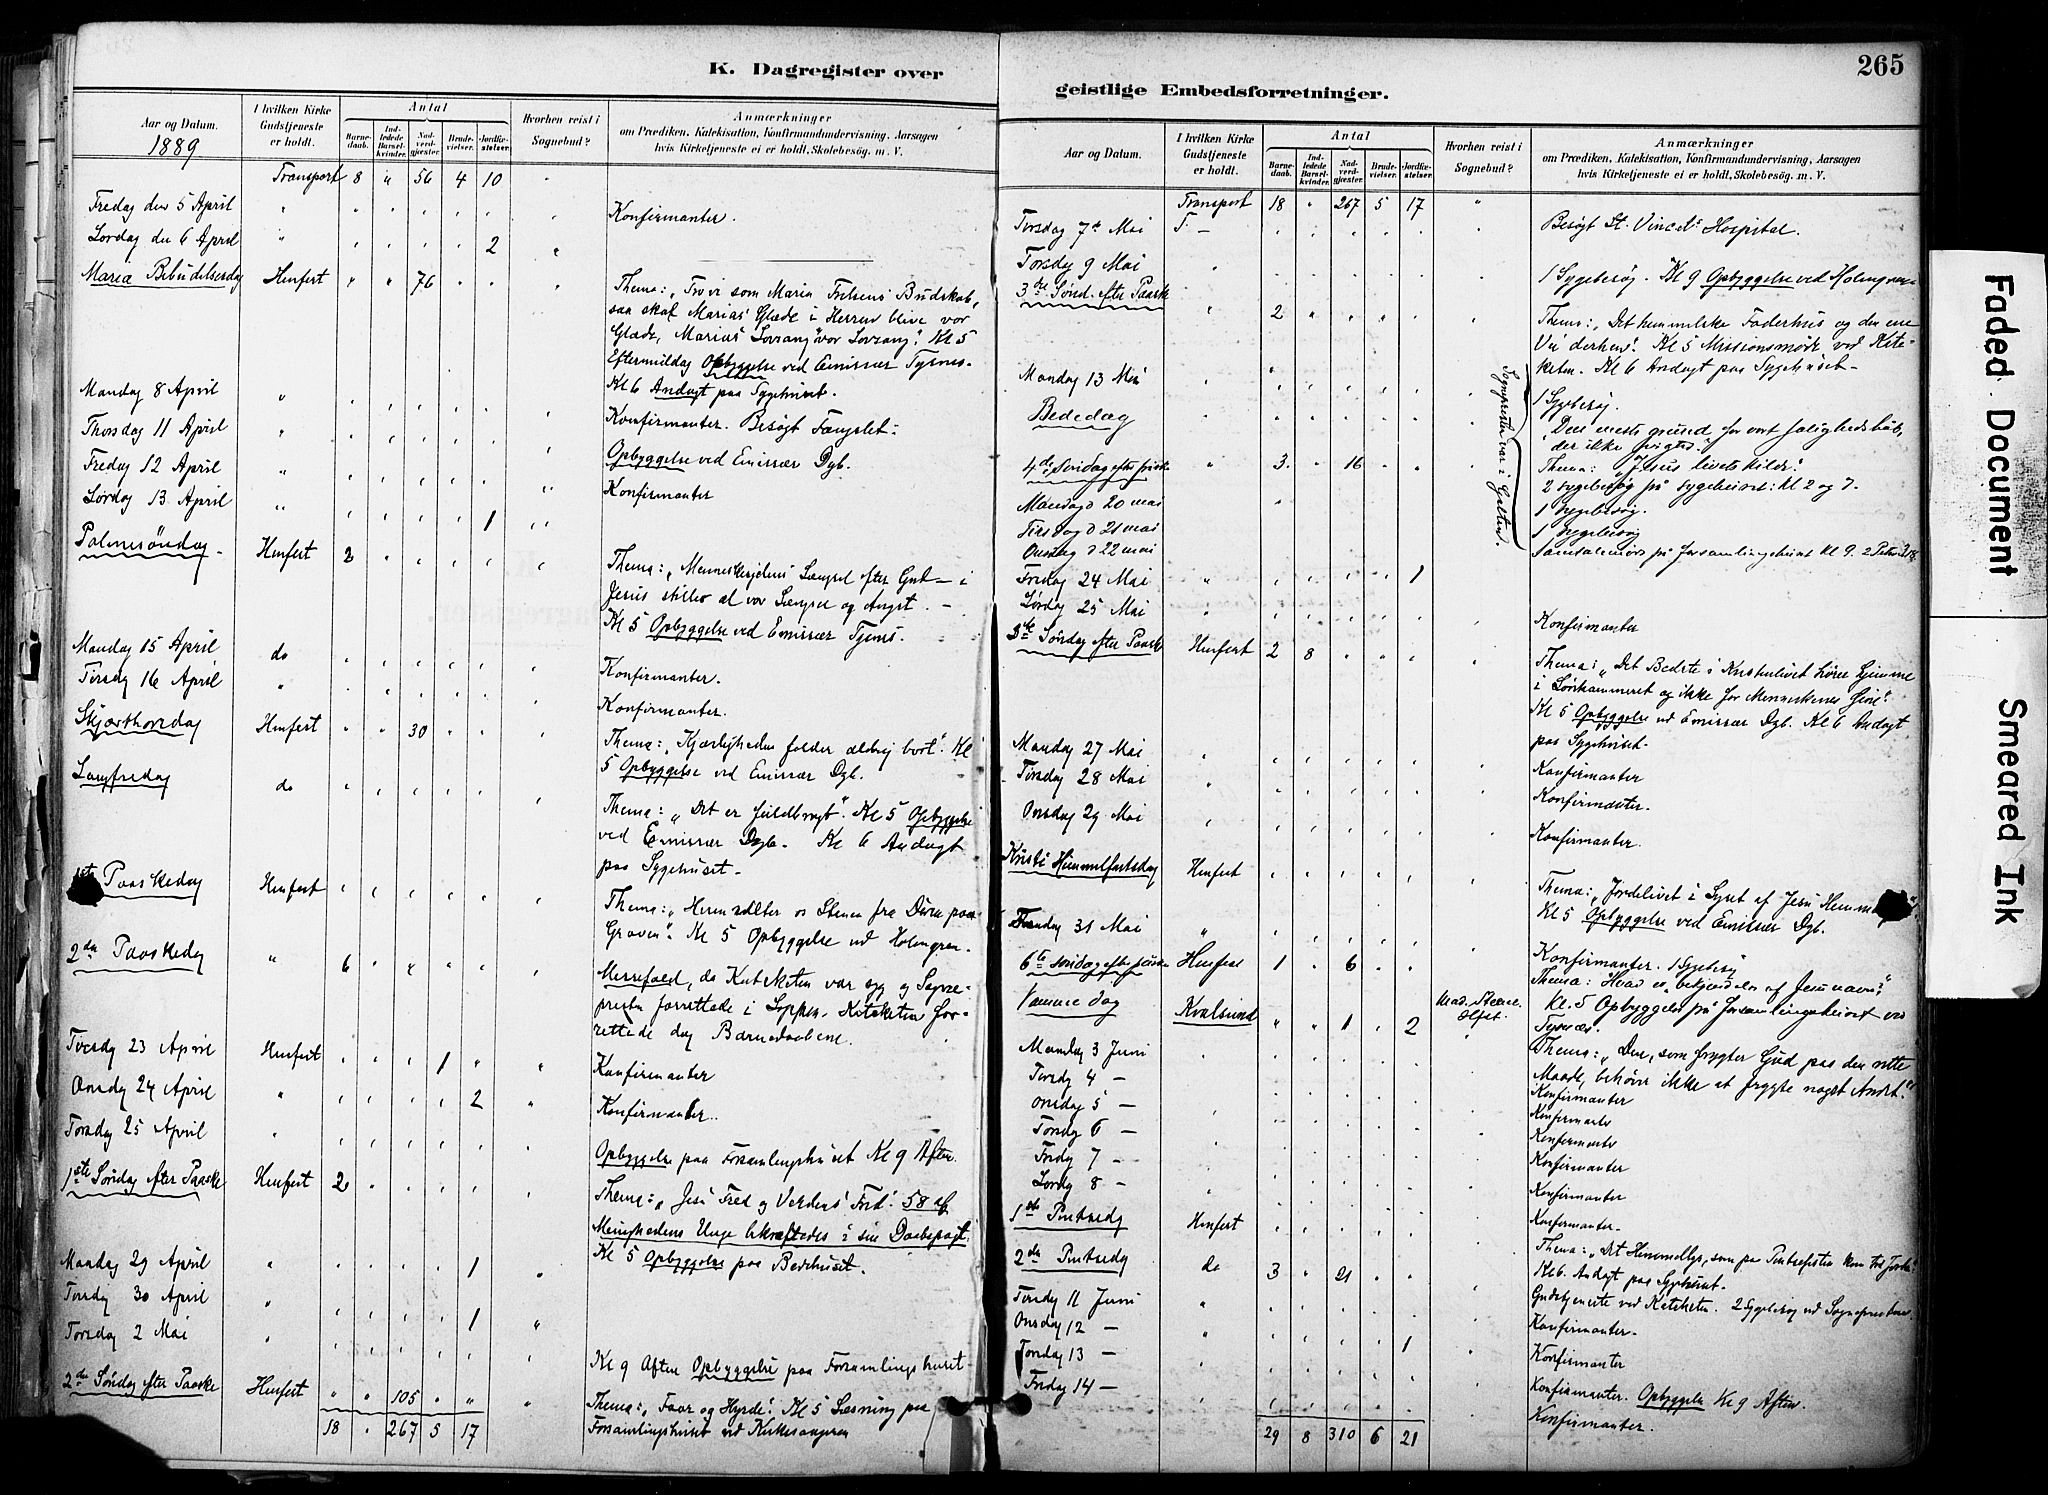 K. Dagregister over
Aar og Datum.
1889
I hvilken Kirke Gudstjeneste er holdt.
Antal
Barnedaab.
Indledede Barselkvinder.
Nadverdgjæster.
Brudevielser.
Jordfæstelser.
Hvorhen reist i Sognebud?
Anmærkninger
om Prædiken, Katekisation, Konfirmandundervisning, Aarsagen
hvis Kirketjeneste ei er holdt, Skolebesøg. m. V.
Transport 8 " 56 4 10
Fredag den 5 April Konfirmanter.
Lørdag den 6 April 2
Maria Bebudelsesdag Hmfest 76 Thema: "Tro vi som Maria Frelsens Budskab,
saa skal Marias' Glæde i Herren blive vor
Glæde, Marias' Lovsang vor Lovsang". Kl 5
Eftermiddag Opbyggelse ved Emissær Tysnes.
Kl 6 Andagt paa Sygehuset.
Mandag 8 April Konfirmanter. Besøgt Fængslet.
Thorsdag 11 April Opbyggelse ved Emissær Dyb.
Fredag 12 April Konfirmanter
Lørdag 13 April 1
Palmesøndag Hmfest 2 Thema: "Menneskesjelens Længsel efter Gud - i
Jesus stilles al vor Længsel og Angst.
Kl 5 Opbyggelse ved Emissær Tysnes.
Mandag 15 April do Konfirmanter.
Tirsdag 16 April Konfirmanter.
Skjærthorsdag Hmfest 30 Thema: "Kjærligheden falder aldrig bort". Kl
5 Opbyggelse ved Emissær Dyb.
Langfredag do Thema: "Det er fuldbragt". Kl 5 Opbyggelse
ved Emissær Dyb. Kl 6 Andagt
paa Sygehuset.
1ste Paaskedag Hmfest Thema: "Herren vælter os Stenen fra Døren paa
Graven". Kl 5 Opbyggelse ved Holmgren.
2den Paaskedag 6 Messefald, da Kateketen var syg og Sogne-
presten forrettede i Loppen. Kateketen for-
rettede dog Barnedaabene.
Tirsdag 23 April Hmfest 1 Konfirmanter
Onsdag 24 April 2 Konfirmanter.
Torsdag 25 April Opbyggelse paa Forsamlingshuset Kl 9 Aften.
1ste Søndag efter Paaske Hmfest 2 Thema: "Jesu Fred og Verdens' Fred". 58 af
Menighedens Unge bekræftedes i sin Daabspagt.
Kl 5 Opbyggelse paa Bedehuset.
Mandag 29 April 1
Tirsdag 30 April 1
Torsdag 2 Mai Kl 9 Aften Opbyggelse paa Forsamlingshuset.
2den Søndag efter Paaske Hmfest 105 Thema: "Faar og Hyrde". Kl 5 Læsning paa
Forsamlingshuset ved Kirkesangeren
18 267 5 17
265
geistlige Embedsforretninger.
Aar og Datum.
I hvilken Kirke Gudstjeneste er holdt.
Antal
Barnedaab.
Indledede Barselkvinder.
Nadverdgjæster.
Brudevielser.
Jordfæstelser.
Hvorhen reist i Sognebud?
Anmærkninger
om Prædiken, Katekisation, Konfirmandundervisning, Aarsagen
hvis Kirketjeneste ei er holdt, Skolebesøg. m. V.
Transport 18 " 267 5 17
Tirsdag 7de Mai Besøgt St. Vincels Hospital.
Torsdag 9 Mai 1 Sygebesøg. Kl 9 Opbyggelse ved Holmgren
3die Sønd. efter Paaske 2 Thema: "Det himmelske Faderhus og den ene
Vei derhen". Kl 5 Missionsmøde ved Kate-
keten. Kl 6 Andagt paa Sygehuset.
Mandag 13 Mai 1 Sygebesøg.
Bededag "Den eneste grund for vort saligheds håb,
der ikke svigter."
Sognepresten var i Galten.
4de Søndag efter påske 3 16 Thema: "Jesus livets kilde".
2 sygebesøg på sygehuset: Kl 2 og 7.
Mandag d 20 mai 1 sygebesøg.
Tirsdag d 21 mai 1 sygebesøg
Onsdag d 22 mai Samtalemøde på forsamlingshuset Kl 9.
Fredag 24 Mai 1
Lørdag 25 Mai Konfirmanter
5te Søndag efter Paaske Hmfest 2 8 Thema: "Det Bedste i Kristenlivet hører hjemme
i Lønkammeret og ikke for Menneskenes Øine".
Kl 5 Opbyggelse ved Emissær Dyb. Kl 6 Andagt
paa Sygehuset.
Mandag 27 Mai Konfirmanter
Tirsdag 28 Mai Konfirmanter.
Onsdag 29 Mai Konfirmanter.
Kristi Himmelfartsdag Hmfest Thema: "Jordelivet i Lyset af Jesu
Kl 5 Opbyggelse ved Emissær Dyb.
Fredag 31 Mai Konfirmanter. 1 Sygebesøg
6te søndag efter påske Hmfest 1 6 Thema: Hvad er "bekjendelse af Jesu navn?"
Kl. 5 Opbyggelse på forsamlingshuset ved
Tysnes.
Samme dag Kvalsund 1 2 Mad. Steene. Thema: "Den, som frygter Gud paa den rette
Maade, behøver ikke at frygte noget Andet".
Mandag 3 Juni Konfirmanter
Tirsdg 4 — Konfirmanter
Onsdag 5 — Konfirmanter
Torsdg 6 — Konfirmanter
Fredg 7 — Konfirmanter
Lørdg 8 — Konfirmanter.
1ste Pintsedg Hmfest Thema: "Det Himmellys, som paa Pintsefesten kom til Jorden".
Kl 6. Andagt paa Sygehuset.
2den Pintsedg do 3 21 Gudstjeneste ved Kateketen. 2 Sygebesøg ved Sognepresten.
Tirsdg 11 Juni Konfirmanter.
Onsdag 12 — 1 Konfirmanter
Torsdag 13 — Konfirmanter. Opbyggelse Kl 9 Aften.
Fredag 14 — Konfirmanter.
29 8 310 6 21
Faded Document
Smeared Ink